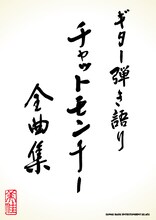 ギター弾き語り
チャットモンチー
全曲集